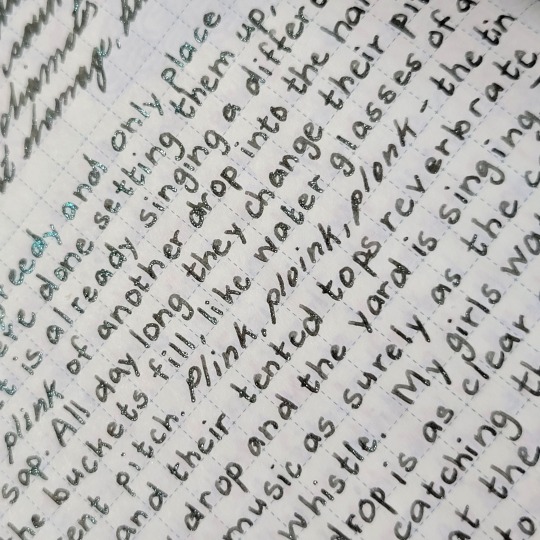 damage,
ready and only place
ere done setting them up,
t is already singing a differ
plink of another drop into the ha
sap. All day long they change their pi
he buckets fill, like water glasses of d
ent pitch. plink, ploink, plonk - the tin
and their tented tops reverbrate
drop and the yard is singing.
music as surely as the c
whistle. My girls wa
drop is as clear
catching th
at the
to